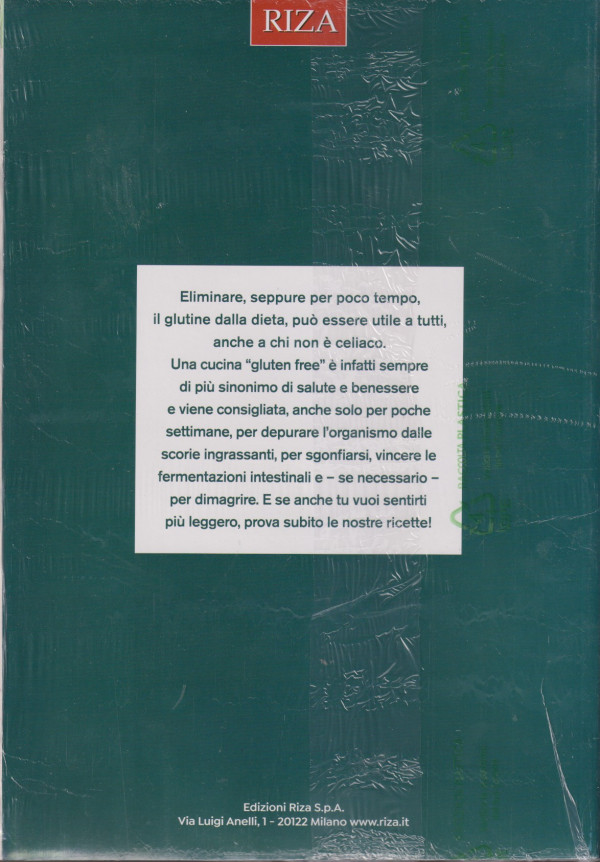 RIZA
Eliminare, seppure per poco tempo,
il glutine dalla dieta, può essere utile a tutti,
anche a chi non è celiaco.
Una cucina “gluten free” è infatti sempre
di più sinonimo di salute e benessere
e viene consigliata, anche solo per poche
settimane, per depurare l’organismo dalle
scorie ingrassanti, per sgonfiarsi, vincere le
fermentazioni intestinali e – se necessario –
per dimagrire. E se anche tu vuoi sentirti
più leggero, prova subito le nostre ricette!
RACCOLTA PLASTICA
Edizioni Riza S.p.A.
Via Luigi Anelli, 1 - 20122 Milano www.riza.it